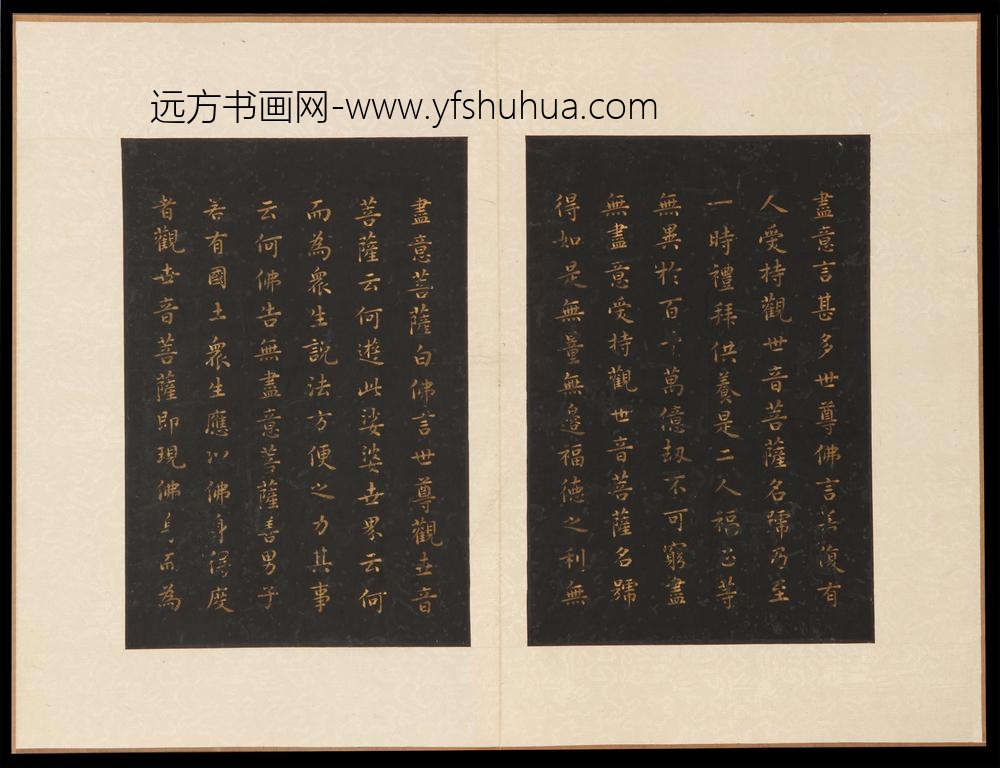 远方书画网-www.yfshuhua.com
盡意言甚多世尊佛言若復有
人受持觀世音菩薩名號乃至
一時禮拜供養是二人福正等
無異於百千萬億劫不可窮盡
無盡意受持觀世音菩薩名號
得如是無量無邊福德之利無
盡意菩薩白佛言世尊觀世音
菩薩云何遊此娑婆世界云何
而為衆生說法方便之力其事
云何佛告無盡意菩薩善男子
若有國土衆生應以佛身得度
者觀世音菩薩即現佛身而為